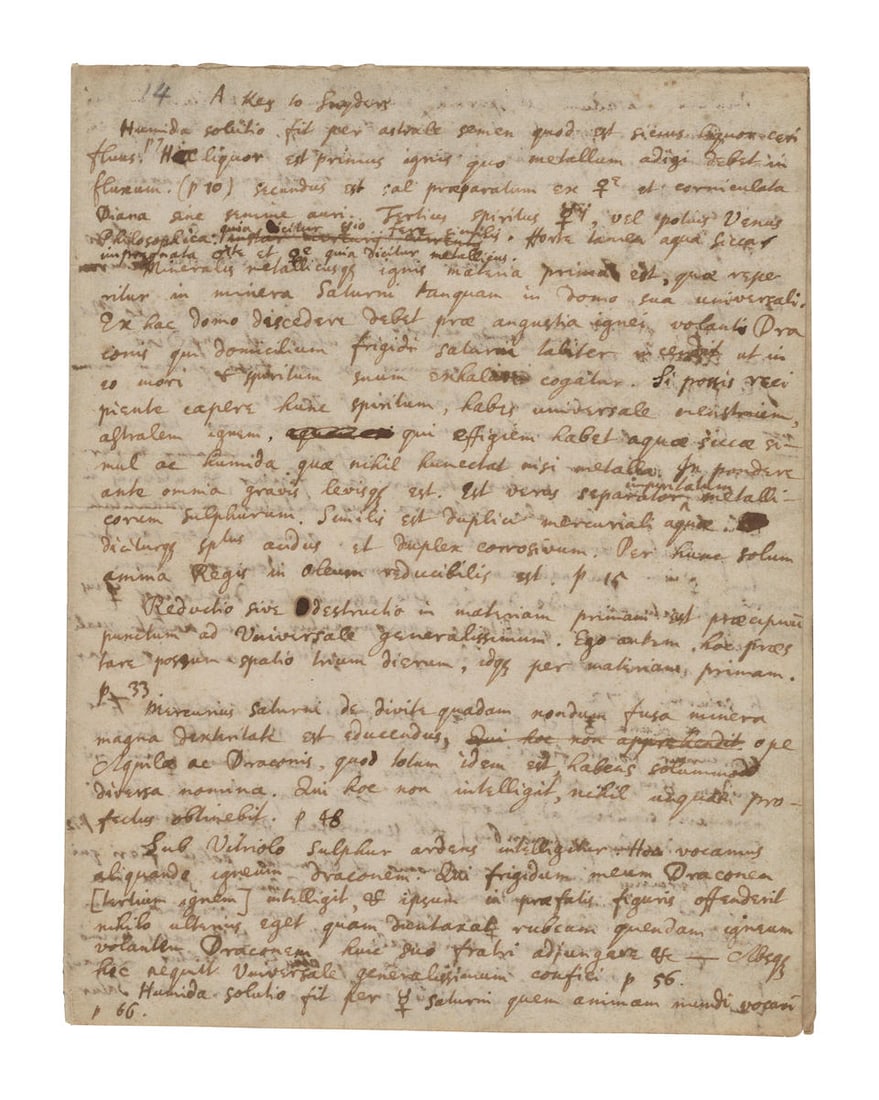 14 A Key to Snyders
Humida solutio fit per astrale semen quod est siccus liquor ceri
fluus. Hic liquor est primus ignis quo metallum adigi debet in
fluxum. (p 10) secundus est sal præparatum ex ♀e et corniculata
Diana sine semine auri. Tertius spiritus ☿ij, vel potius Venus
Philosophica. quia dicitur fere similis. Horte tamen aqua siccas
impregnata et ♀e quia dicitur metallicus.
Mineralis metallicusqȝ ignis materia prima est, quæ repe
ritur in minera Saturni tanquam in domo sua universali.
Ex hac domo discedere debet præ angustia ignei volantis Dra
conis qui domicilium frigidi Saturni ut in
eo mori & spiritum suum exhalare cogatur. Si possis reci
piente capere hunc spiritum, habes universale menstruum,
astralem ignem, qui effigiem habet aquæ siccæ si-
mul ac humida quæ nihil humectat nisi metalla. In pondere
ante omnia gravis levisqȝ est. Est verus separator impuritatum metalli-
corum sulphurum. Similis est duplici mercuriali aquæ.
diciturqȝ sptus acidus et duplex corrosivum. Per hunc solum
anima Regis in Oleum reducibilis est. p 15
Reductio sive destructio in materiam primam est præcipuū
punctum ad Universale generalissimum. Ego autem hoc præs
tare possum spatio trium dierum, idqȝ per materiam primam.
p 33.
Mercurius Saturni de divite quadam nondum fusa minera
magna dexteritate est educendus, Qui hoc non apprehendit, ope
Aquilæ ac Draconis, quod totum idem est, habens solummodo
diversa nomina. Qui hoc non intelligit, nihil unquam pro-
fectus obtinebit. p 48
Sub Vitriolo sulphur ardens intelligitur. Hoc vocamus
aliquando igneum draconem. Qui frigidum meum Draconem
[tertium ignem] intelligit, & ipsum in præfatis figuris offenderit
nihilo ulterius eget quam duntaxat rubeum quendam igneum
volantem Draconem huic suo fratri adjungere &c — Absqȝ
hoc nequit Universale generalissimum confici p 56.
Humida solutio fit per ☿ Saturni quem animam mundi vocavi
p 66.